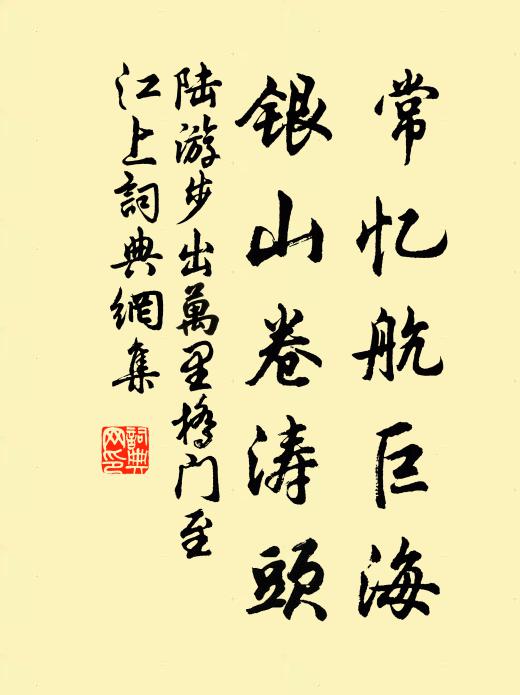 常忆航巨海
银山卷涛头
陆游步出萬里橋门至
江上詞典網集
詞典
网印